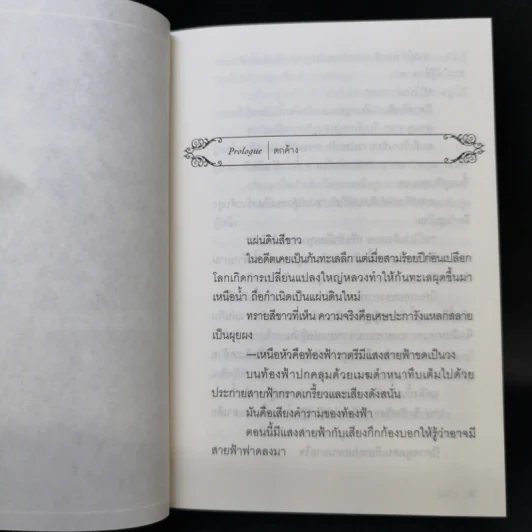 Prologue | ตกค้าง
แผ่นดินสีขาว
ในอดีตเคยเป็นก้นทะเลลึก แต่เมื่อสามร้อยปีก่อนเปลือก
โลกเกิดการเปลี่ยนแปลงใหญ่หลวงทำให้ก้นทะเลผุดขึ้นมา
เหนือน้ำ ถือกำเนิดเป็นแผ่นดินใหม่
ทรายสีขาวที่เห็น ความจริงคือเศษปะการังแหลกสลาย
เป็นผุยผง
—เหนือหัวคือท้องฟ้าราตรีมีแสงสายฟ้าขดเป็นวง
บนท้องฟ้าปกคลุมด้วยเมฆดำหนาทึบเต็มไปด้วย
ประกายสายฟ้ากราดเกรี้ยวและเสียงดังสนั่น
มันคือเสียงคำรามของท้องฟ้า
ตอนนี้มีแสงสายฟ้ากับเสียงกึกก้องบอกให้รู้ว่าอาจมี
สายฟ้าฟาดลงมา